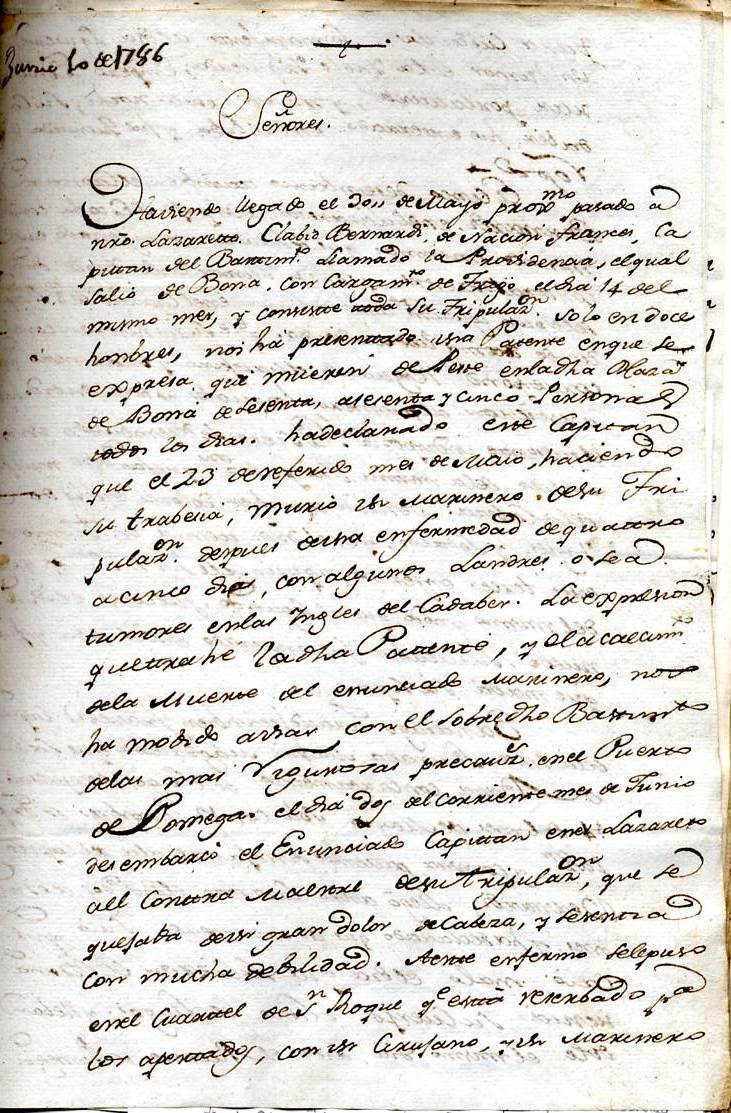 Junio 10 de 1786
Señores.
Haviendo llegado el 30,, de Mayo prox.mo pasado a
nro. Lazareto. Clabio Bernardi, de Nacion frances, Ca
pittan del Bastim.to Llamado la Providencia, el qual
salio de Bona, con Cargam.to de Trigo, el dia 14 del
mismo mes, y consiste toda su Tripulaz.on solo en doce
hombres, nos ha presentado una Patente en que se
expresa que mueren de Peste en la dha Plaza
de Bona de sesenta, a sesenta y cinco Personas
todos los dias. ha declarado este Capitan
que el 23 de referido mes de Maio, haciendo
su trabesia, murio un Marinero de su Tri
pulaz.on despues de una enfermedad de quattro
a cinco dias, con algunos Landres o sea
tumores en las Ingles del Cadaber. La expresion
que trahe la dha Patente, y el acaecim.to
de la Muerte del enunciado Marinero, nos
ha movido a usar con el sobre dho Bastim.to
de las mas Vigurosas precauz.s en el Puerto
de Pomega. el dia dos del corriente mes de Junio
desembarcó el Enunciado Capittan en el Lazareto
àll Contra Maestre de su tripulaz.on, que se
quejaba de un gran dolor de Cabeza, y se sentia
con mucha debilidad. A este enfermo se le puso
en el Quartel de S.n Roque q.e está reserbado p.a
los apestados, con un Cirujano, y un Marinero